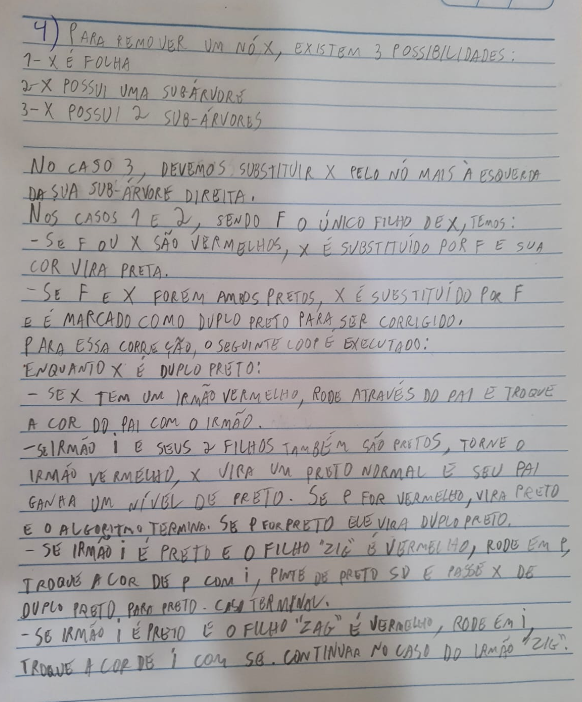 4) PARA REMOVER UM NÓ X, EXISTEM 3 POSSIBILIDADES:
1- X É FOLHA
2- X POSSUI UMA SUBÁRVORE
3- X POSSUI 2 SUB-ÁRVORES
NO CASO 3, DEVEMOS SUBSTITUIR X PELO NÓ MAIS À ESQUERDA
DA SUA SUB-ÁRVORE DIREITA.
NOS CASOS 1 E 2, SENDO F O ÚNICO FILHO DE X, TEMOS:
- SE F OU X SÃO VERMELHOS, X É SUBSTITUÍDO POR F E SUA
COR VIRA PRETA.
- SE F E X FOREM AMBOS PRETOS, X É SUBSTITUÍDO POR F
E É MARCADO COMO DUPLO PRETO PARA SER CORRIGIDO.
PARA ESSA CORREÇÃO, O SEGUINTE LOOP É EXECUTADO:
ENQUANTO X É DUPLO PRETO:
- SE X TEM UM IRMÃO VERMELHO, RODE ATRAVÉS DO PAI E TROQUE
A COR DO PAI COM O IRMÃO.
- SE IRMÃO i E SEUS 2 FILHOS TAMBÉM SÃO PRETOS, TORNE O
IRMÃO VERMELHO, X VIRA UM PRETO NORMAL E SEU PAI
GANHA UM NÍVEL DE PRETO. SE P FOR VERMELHO, VIRA PRETO
E O ALGORITMO TERMINA. SE P FOR PRETO ELE VIRA DUPLO PRETO.
- SE IRMÃO i É PRETO E O FILHO "ZIG" É VERMELHO, RODE EM P,
TROQUE A COR DE P COM i, PINTE DE PRETO SD E PASSE X DE
DUPLO PRETO PARA PRETO. CASO TERMINAL.
- SE IRMÃO i É PRETO E O FILHO "ZAG" É VERMELHO, RODE EM i,
TROQUE A COR DE i COM SE. CONTINUAR NO CASO DO IRMÃO "ZIG".